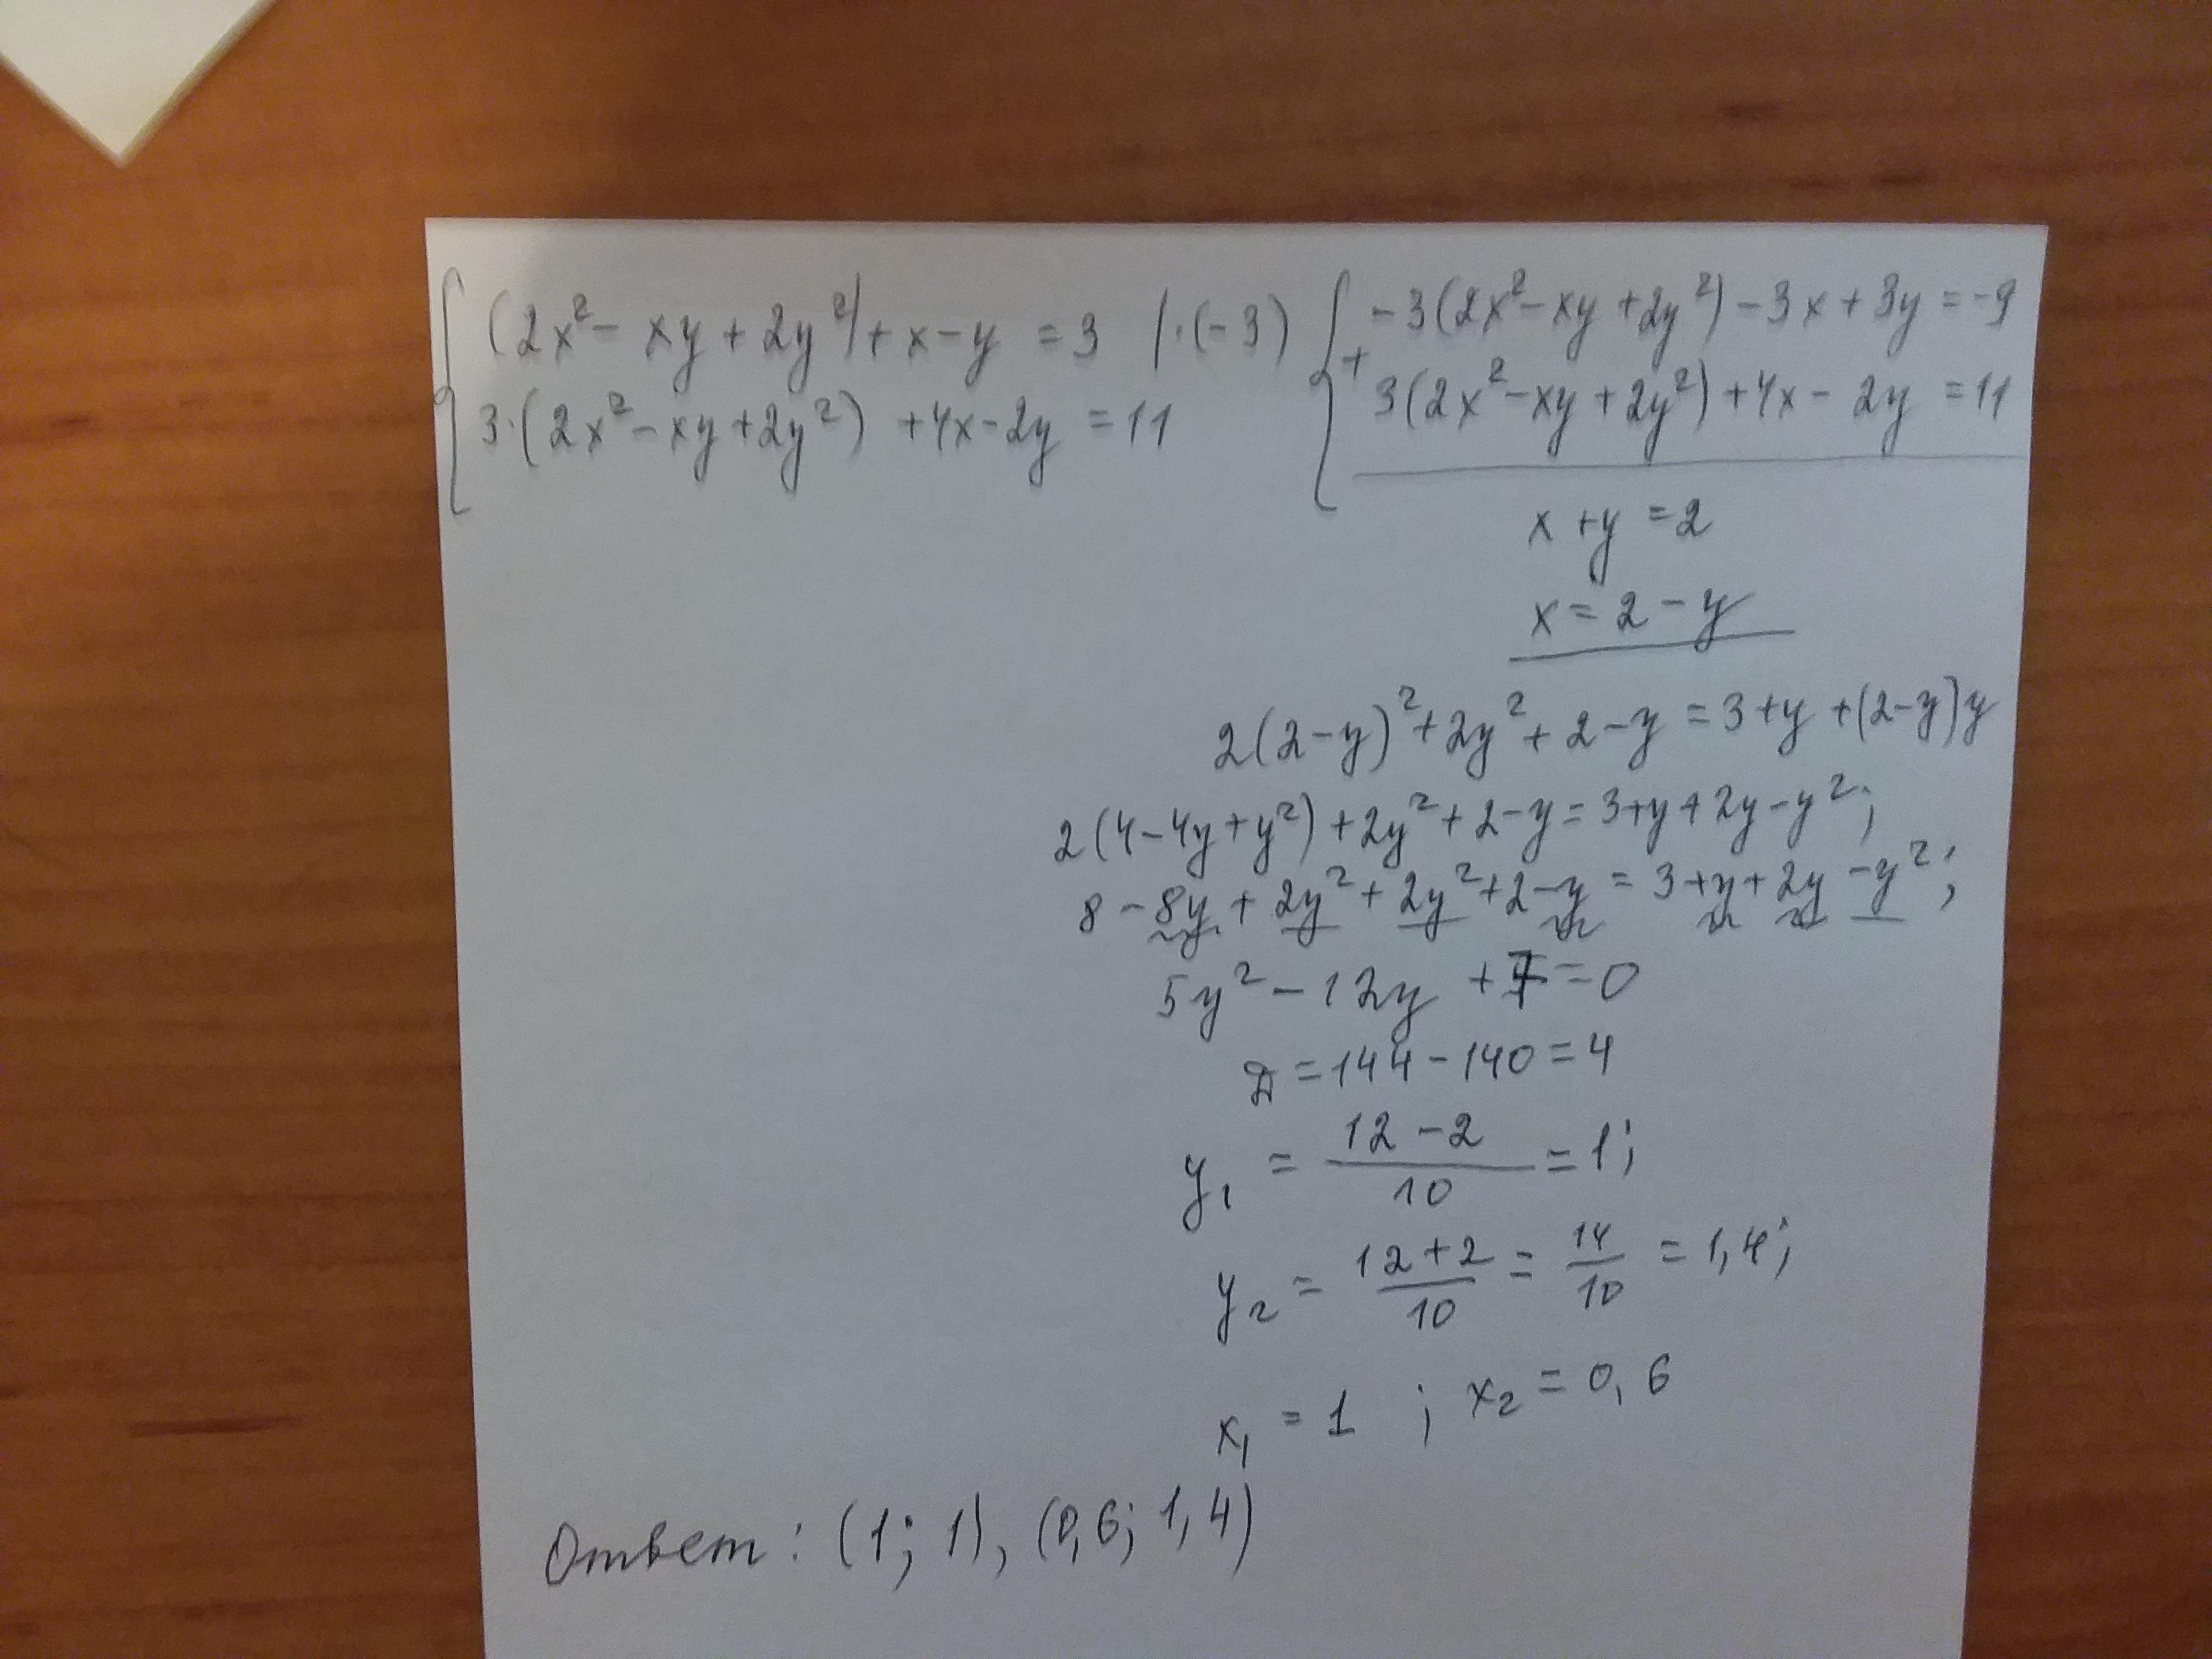 (2x² - xy + 2y²) + x - y = 3 | ·(-3)
3·(2x² - xy + 2y²) + 4x - 2y = 11
-3(2x² - xy + 2y²) - 3x + 3y = -9
+ 3(2x² - xy + 2y²) + 4x - 2y = 11
x + y = 2
x = 2 - y
2(2-y)² + 2y² + 2 - y = 3 + y + (2-y)y
2(4 - 4y + y²) + 2y² + 2 - y = 3 + y + 2y - y²;
8 - 8y + 2y² + 2y² + 2 - y = 3 + y + 2y - y²;
5y² - 12y + 7 = 0
Д = 144 - 140 = 4
y₁ = (12 - 2)/10 = 1;
y₂ = (12 + 2)/10 = 14/10 = 1,4;
x₁ = 1 ; x₂ = 0,6
Ответ: (1; 1), (0,6; 1,4)